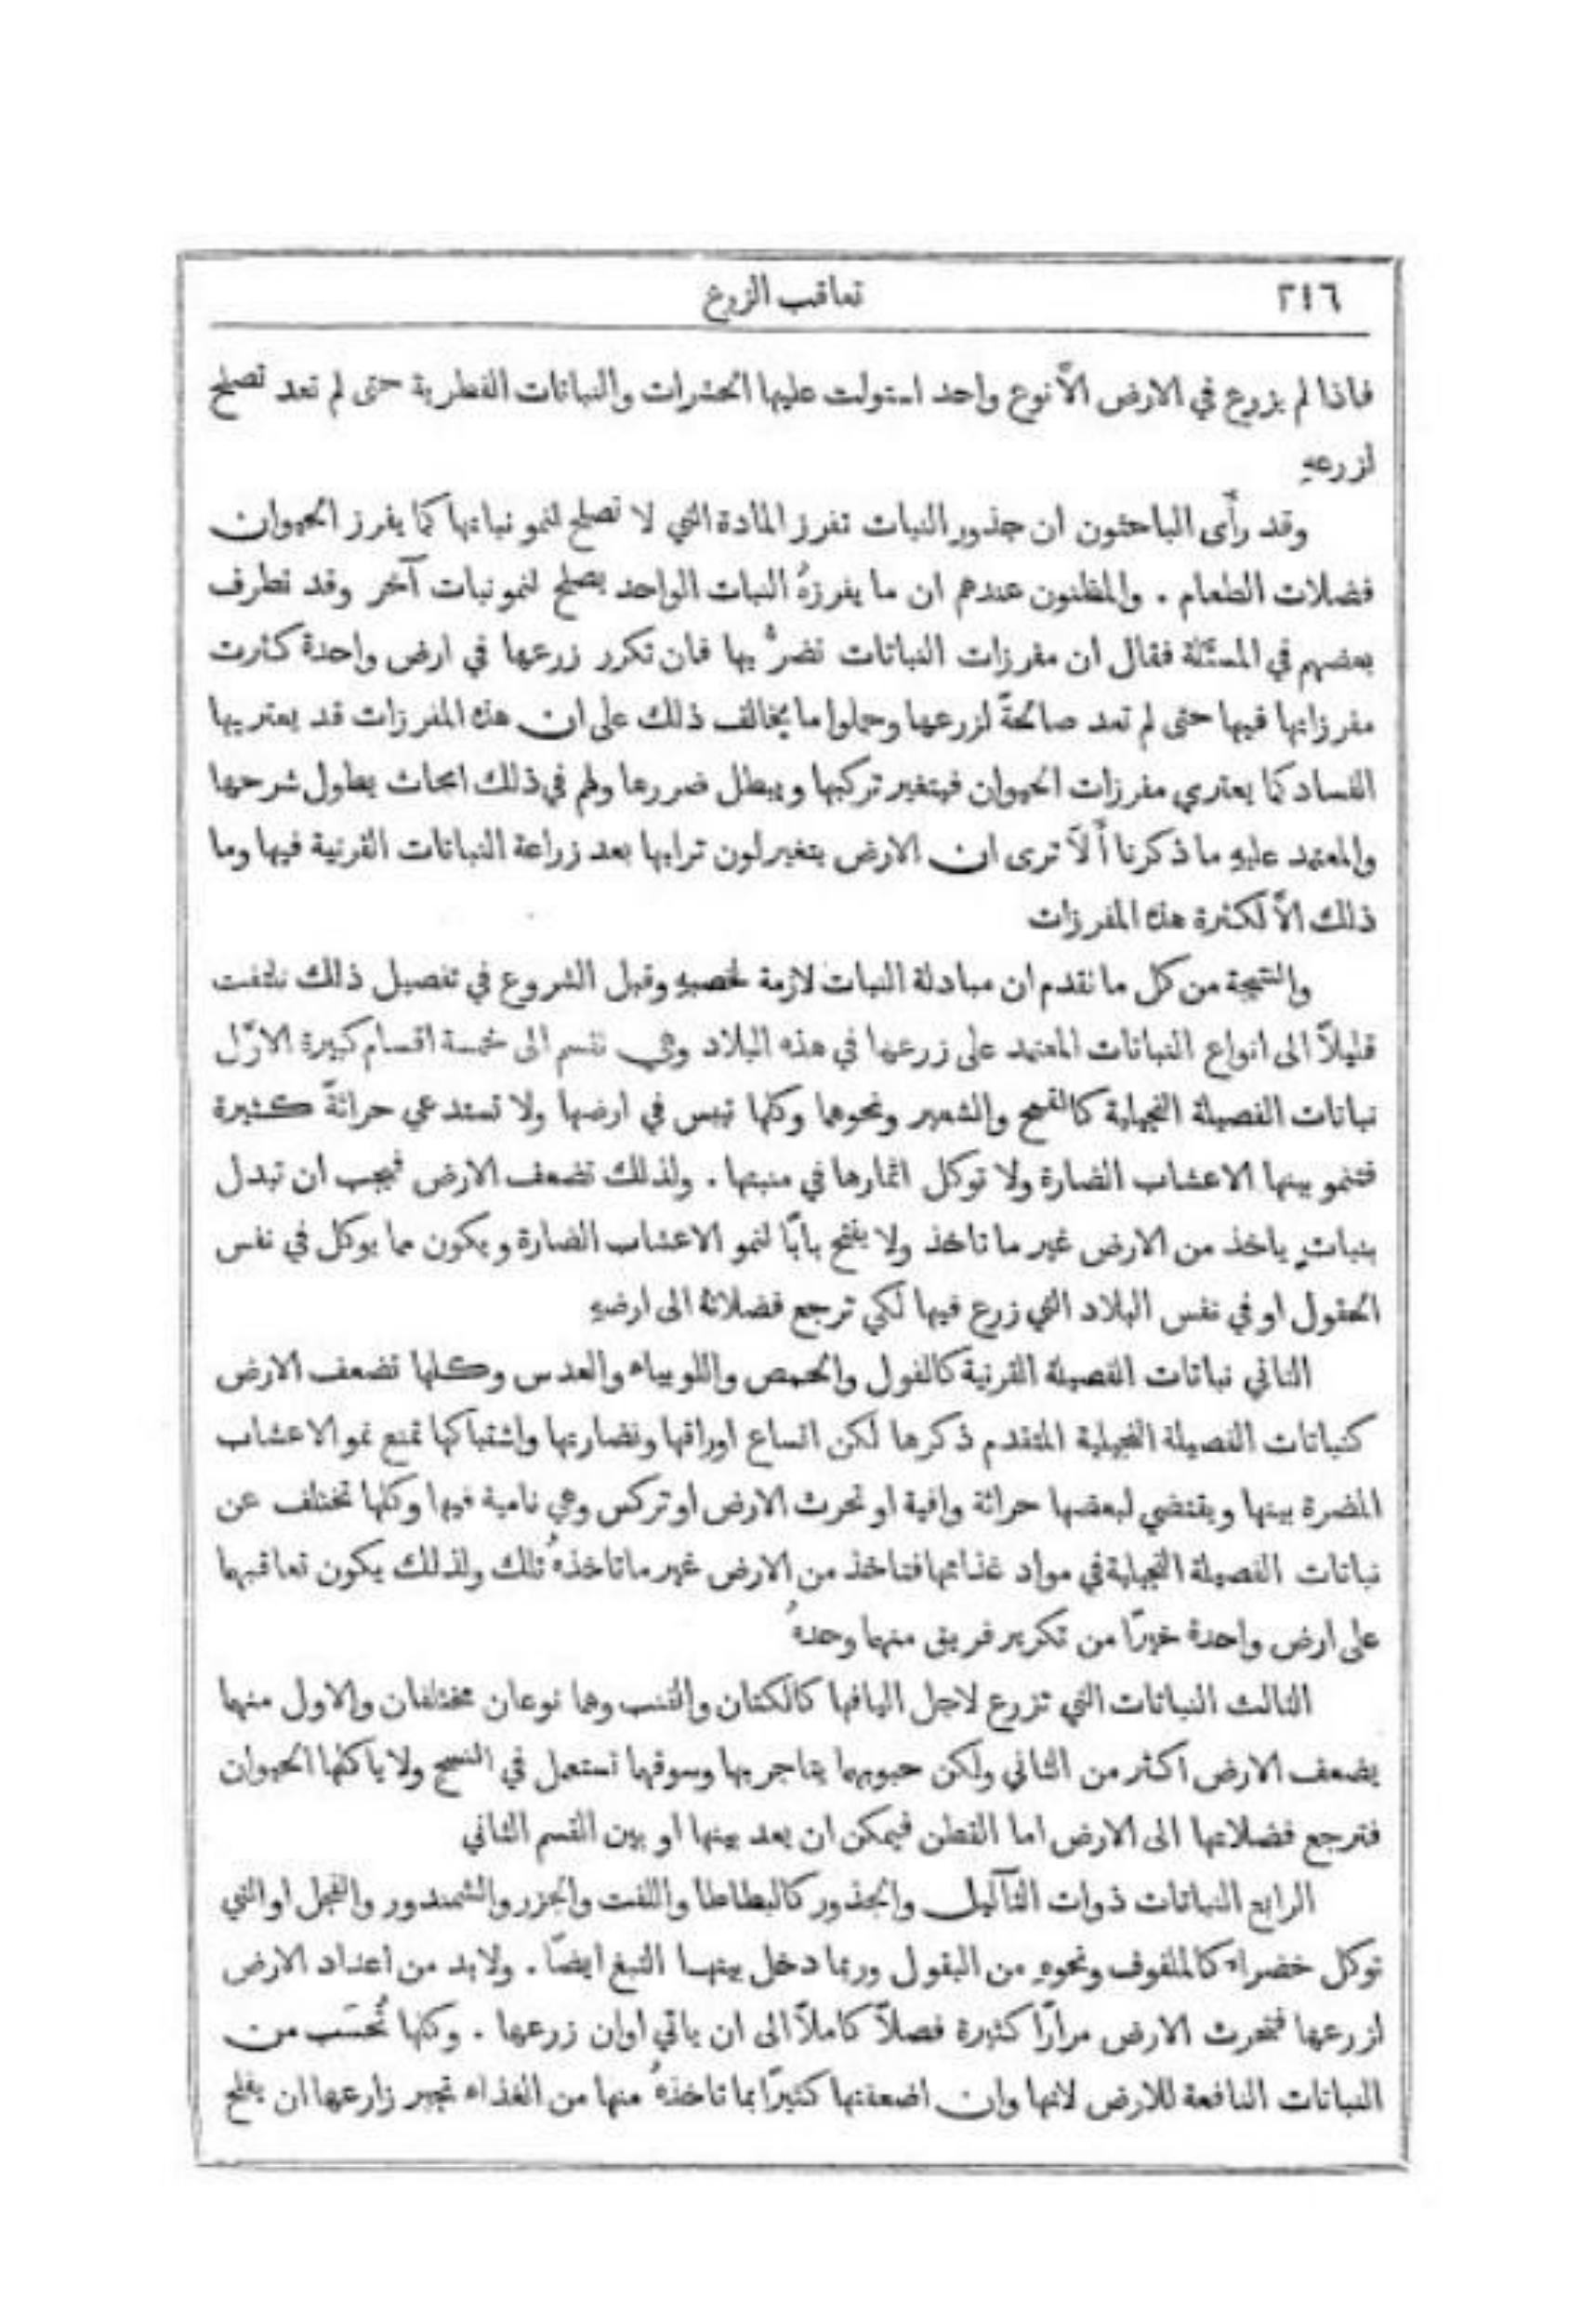 ٢٤٦
تعاقب الزرع
فاذا لم يزرع في الارض الّا نوع واحد استولت عليها الحشرات والنباتات الفطرية حتى لم تعد تصلح
لزرعهِ
وقد رأَى الباحثون ان جذور النبات تفرز المادة التي لا تصلح لنمو نباتها كما يفرز الحيوان
فضلات الطعام . والمظنون عندهم ان ما يفرزهُ النبات الواحد يصلح لنمو نبات آخر وقد تطرف
بعضهم في المسئلة فقال ان مفرزات النباتات تضرُّ بها فان تكرر زرعها في ارض واحدة كثرت
مفرزاتها فيها حتى لم تعد صالحةً لزرعها وحملوا ما يخالف ذلك على ان هذه المفرزات قد يعتريها
الفساد كما يعتري مفرزات الحيوان فيتغير تركبها ويبطل ضررها ولهم في ذلك ابحاث يطول شرحها
والمعتمد عليهِ ما ذكرنا أَلَا ترى ان الارض يتغير لون ترابها بعد زراعة النباتات القرنية فيها وما
ذلك الّا لكثرة هذه المفرزات
والنتيجة من كل ما تقدم ان مبادلة النبات لازمة لخصبهِ وقبل الشروع في تفصيل ذلك نلتفت
قليلًا الى انواع النباتات المعتمد على زرعها في هذه البلاد وهي تقسم الى خمسة اقسام كبيرة الاوّل
نباتات الفصيلة النجيلية كالقمح والشعير ونحوهما وكلها تيبس في ارضها ولا تستدعي حراثةً كثيرة
فتنمو بينها الاعشاب الضارة ولا توكل اثمارها في منبتها . ولذلك تضعف الارض فيجب ان تبدل
بنباتٍ ياخذ من الارض غير ما تاخذ ولا يفتح بابًا لنمو الاعشاب الضارة ويكون مما يوكل في نفس
الحقول او في نفس البلاد التي زرع فيها لكي ترجع فضلاتهُ الى ارضهِ
الثاني نباتات الفصيلة القرنية كالفول والحمص واللوبياء والعدس وكلها تضعف الارض
كنباتات الفصيلة النجيلية المتقدم ذكرها لكن اتساع اوراقها ونضارتها واشتباكها تمنع نمو الاعشاب
المضرة بينها ويقتضي لبعضها حراثة وافية او تحرث الارض او تركس وهي نامية فيها وكلها تختلف عن
نباتات الفصيلة النجيلية في مواد غذائها فتاخذ من الارض غير ما تاخذهُ تلك ولذلك يكون تعاقبهما
على ارض واحدة خيرًا من تكرير فريق منهما وحدهُ
الثالث النباتات التي تزرع لاجل اليافها كالكتان والقنب وهما نوعان مختلفان والاول منهما
يضعف الارض اكثر من الثاني ولكن حبوبهما يتاجر بها وسوقهما تستعمل في النسج ولا ياكلها الحيوان
فترجع فضلاتها الى الارض اما القطن فيمكن ان يعد بينها او بين القسم الثاني
الرابع النباتات ذوات الثآليل والجذور كالبطاطا واللفت والجزر والشمندور والفجل او التي
توكل خضراء كالملفوف ونحوهِ من البقول وربما دخل بينها التبغ ايضًا . ولابد من اعداد الارض
لزرعها فتحرث الارض مرارًا كثيرة فصلًا كاملًا الى ان ياتي اوان زرعها . وكلها تُحسَب من
النباتات النافعة للارض لانها وان اضعفتها كثيرًا بما تاخذهُ منها من الغذاء تجبر زارعها ان يفلح